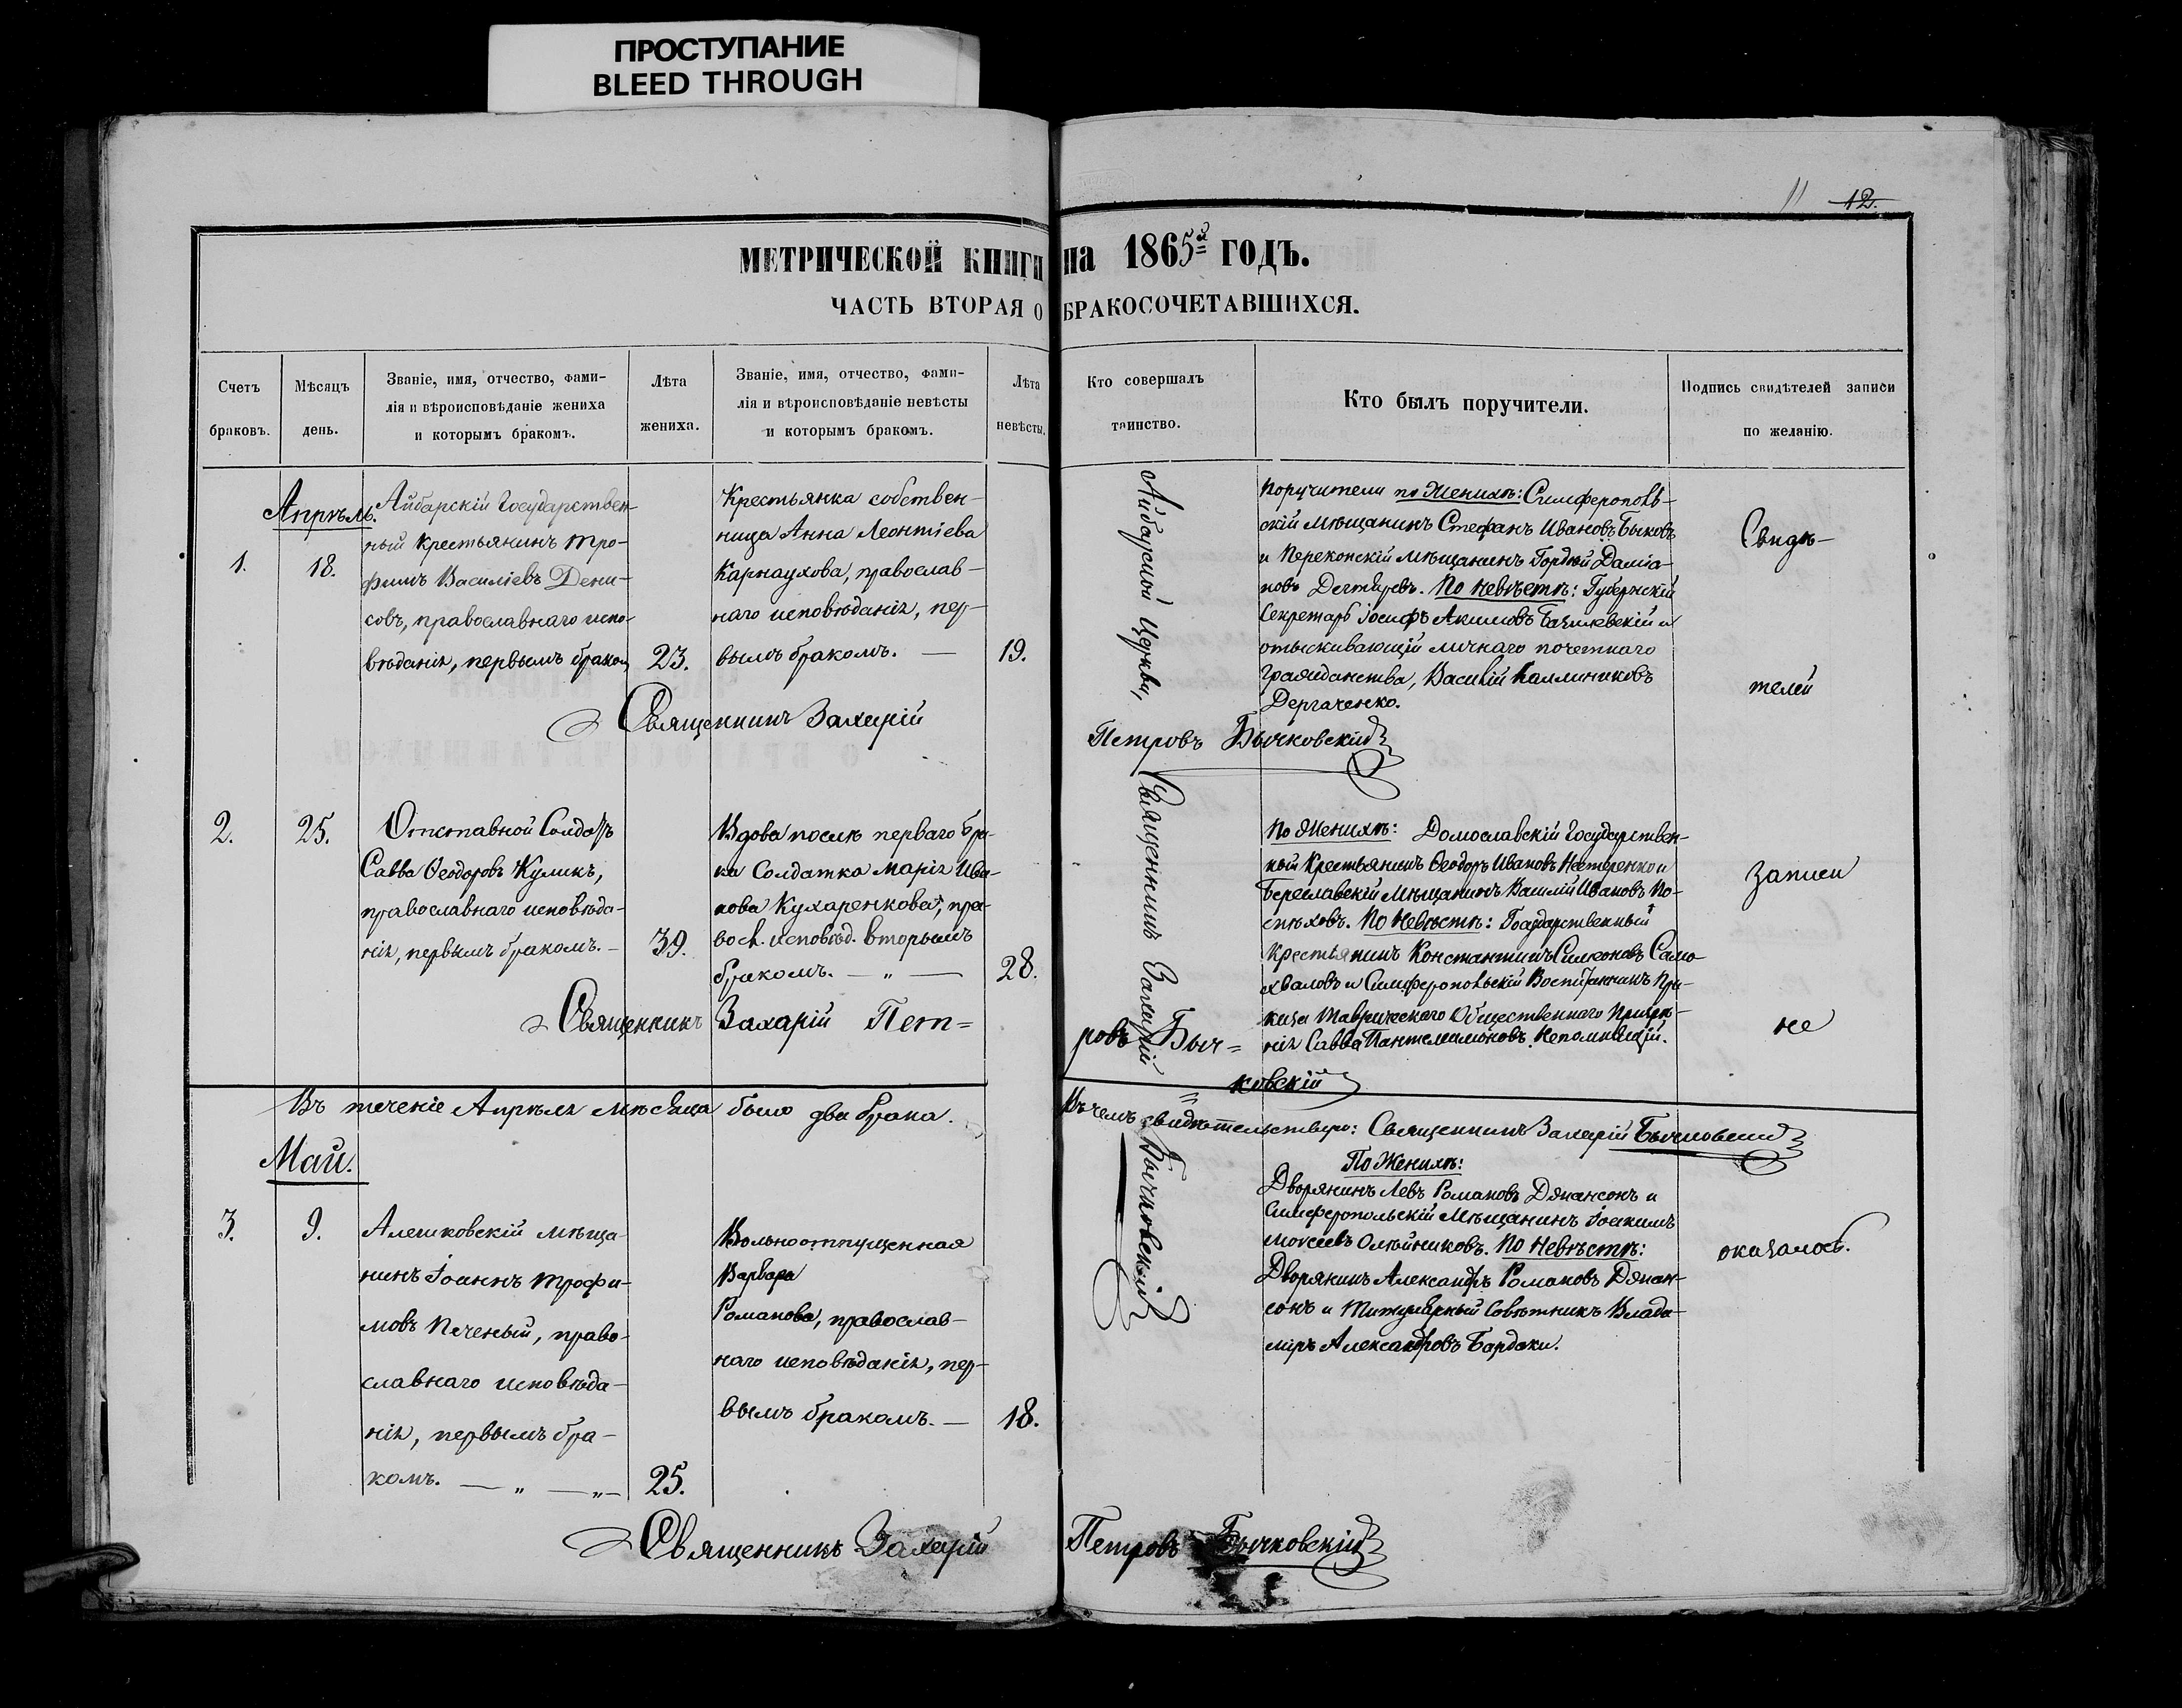 ПРОСТУПАНИЕ
BLEED THROUGH
11 12.
МЕТРИЧЕСКОЙ КНИГИ на 1865й ГОДЪ.
ЧАСТЬ ВТОРАЯ О БРАКОСОЧЕТАВШИХСЯ.
Счетъ
браковъ.
Мѣсяцъ
день.
Званіе, имя, отчество, фами-
лія и вѣроисповѣданіе жениха
и которымъ бракомъ.
Лѣта
жениха.
Званіе, имя, отчество, фами-
лія и вѣроисповѣданіе невѣсты
и которымъ бракомъ.
Лѣта
невѣсты.
Кто совершалъ
таинство.
Кто былъ поручители.
Подпись свидѣтелей записи
по желанію.
Апрѣль.
1.
18.
Айбарскій Государствен-
ный крестьянинъ Тро-
фимъ Василіевъ Дени-
совъ, православнаго испо-
вѣданія, первымъ браком
23.
Крестьянка собствен-
ница Анна Леонтіева
Карнаухова, православ-
наго исповѣданія, пер-
вымъ бракомъ. —
19.
Айбарской Церкви,
Священникъ Захарій
Бычковскій
Поручители по Женихѣ: Симферополь-
скій мѣщанинъ Стефанъ Ивановъ Быковъ
и Перекопскій мѣщанинъ Гордѣй Даміа-
новъ Дегтяревъ. По невѣстѣ: Губернскій
Секретарь Іосифъ Акимовъ и
отыскивающій личнаго почетнаго
гражданства, Василій Каллиниковъ
Дергаченко.
Свидѣ-
телей
записи
не
оказалось.
Священникъ Захарій Петровъ Бычковскій
2.
25.
Отставной Солдатъ
Савва Ѳеодоровъ Куликъ,
православнаго исповѣда-
нія, первымъ бракомъ. —
39.
Вдова послѣ перваго бра-
ка Солдатка Марія Ива-
нова Кухаренкова, пра-
восл. исповѣд. вторымъ
бракомъ. — „ —
28.
По Женихѣ: Домославскій Государствен-
ный Крестьянинъ Ѳеодоръ Ивановъ Нестеренко и
Бериславскій Мѣщанинъ Василій Ивановъ По-
спѣховъ. По Невѣстѣ: Государственный
Крестьянинъ Константинъ Симеоновъ Само-
хваловъ и Симферопольскій Воспитанникъ При-
каза Таврическаго Общественнаго Призрѣ-
нія Савва Пантелимоновъ Непомнящій.
Священникъ Захарій Пет=
ровъ Быч=
ковскій
Въ теченіе Апрѣля мѣсяца было два брака.
Въ чемъ свидѣтельствую: Священникъ Захарій Бычковскій
Май.
3.
9.
Алешковскій мѣща-
нинъ Іоаннъ Трофи-
мовъ Печеный, право-
славнаго исповѣда-
нія, первымъ бра-
комъ. — „ — „ —
25.
Вольноотпущенная
Варвара
Романова, православ-
наго исповѣданія, пер-
вымъ бракомъ. —
18.
По Женихѣ:
Дворянинъ Левъ Романовъ Джансонъ и
Симферопольскій Мѣщанинъ Іоакимъ
Моисеевъ Олейниковъ. По Невѣстѣ:
Дворянинъ Александръ Романовъ Джан-
сонъ и Титулярный Совѣтникъ Влади-
міръ Александровъ Бардаки.
Священникъ Захарій Петровъ Бычковскій